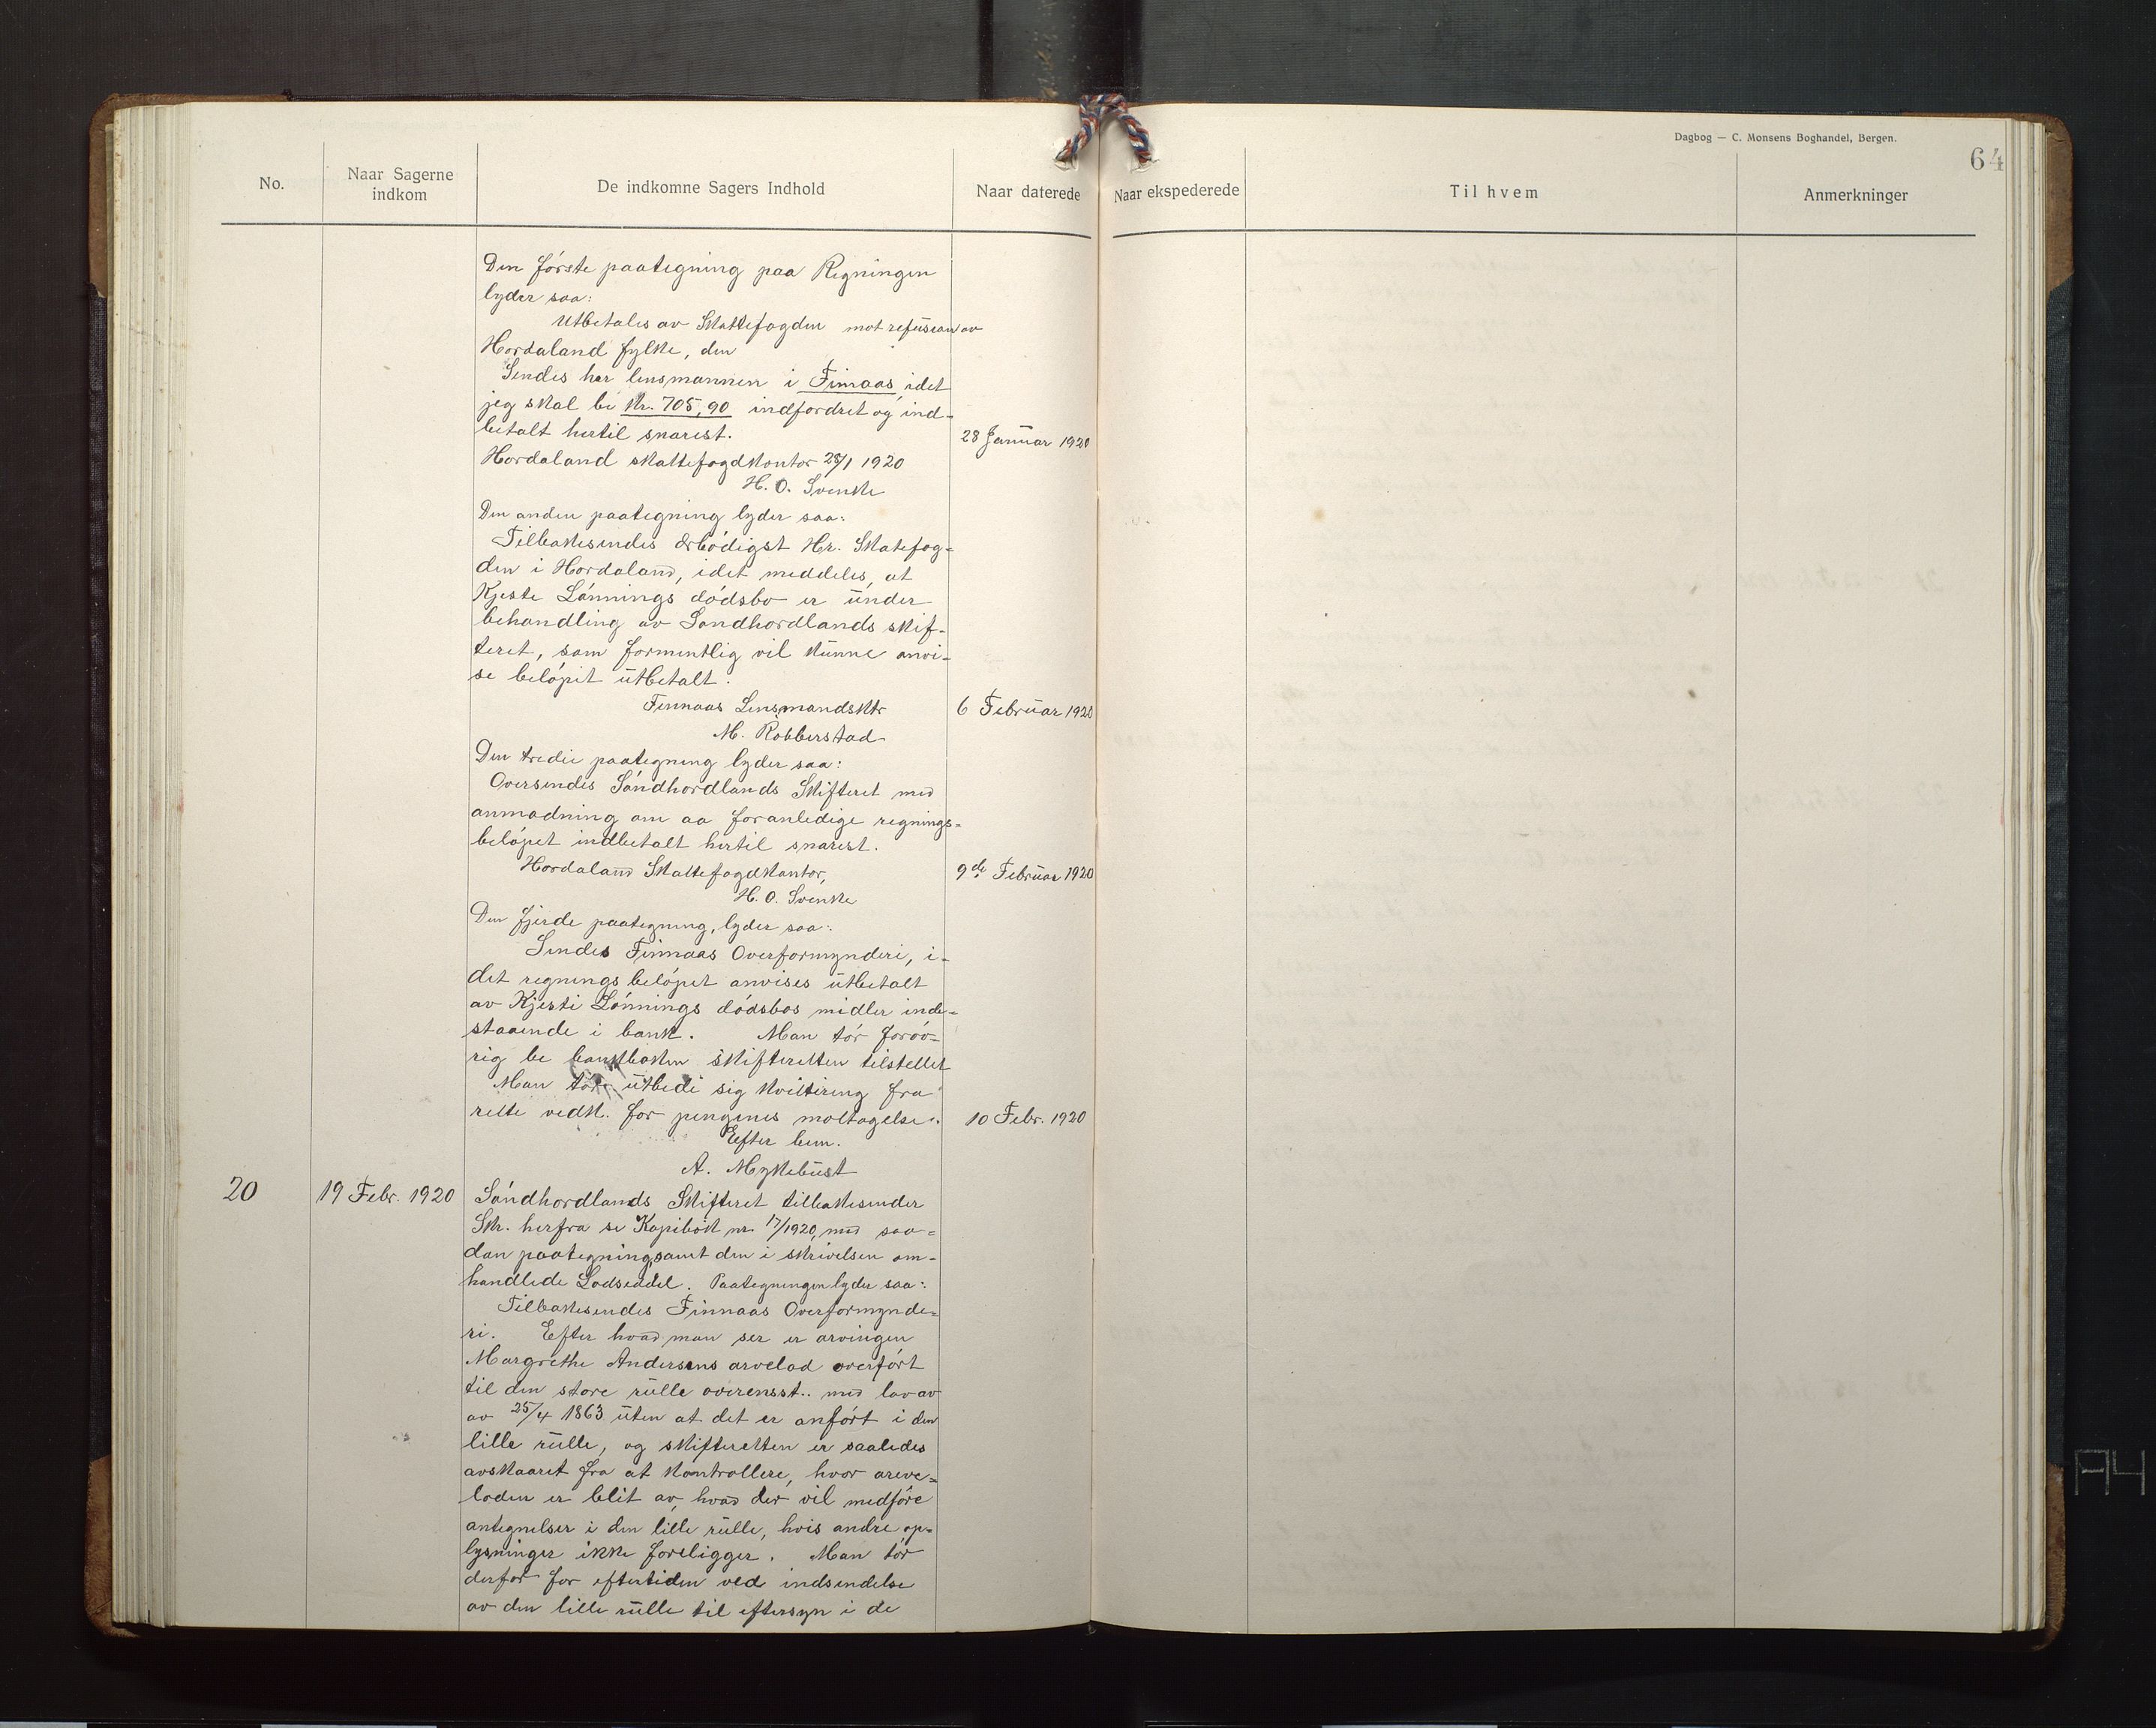 Dagbog — C. Monsens Boghandel, Bergen.
64
No.
Naar Sagerne indkom
De indkomne Sagers Indhold
Naar daterede
Naar ekspederede
Til hvem
Anmerkninger
Den förste paategning paa Regningen
lyder saa:
Utbetales av Skattefogden mot refusion av
Hordaland fylke, den
Sendes hr lensmannen i Finnaas, idet
jeg skal be Kr. 705,90 indfordret og ind-
betalt hertil snarest.
28 Januar 1920
Hordaland skattefogdkontor 28/1 1920
H. O. Svenke
Den anden paategning lyder saa:
Tilbakesendes ærbödigst Hr. Skatefog-
den i Hordaland, idet meddeles, at
Kjeste Lönnings dödsbo er under
behandling av Söndhordlands skif-
teret, som formentlig vil kunne anvi-
se belöpet utbetalt.
Finnaas Lensmandsktr
6 Februar 1920
M. Robberstad
Den tredie paategning lyder saa:
Oversendes Söndhordlands Skifteret med
anmodning om aa foranledige regnings-
belöpet indbetalt hertil snarest.
Hordaland Skattefogdkontor,
9de Februar 1920
H. O. Svenke
Den fjerde paategning, lyder saa:
Sendes Finnaas Overformynderi, i-
det regningsbelöpet anvises utbetalt
av Kjesti Lönnings dödsbos midler inde-
staaende i bank. Man tör foröv-
rig be bankboken skifteretten tilstellet
Man tör utbede sig kvittering fra
rette vedk. for pengenes mottagelse.
10 Febr. 1920
Efter bem.
A. Myklebust
20
19 Febr. 1920
Söndhordlands Skifteret tilbakesender
Skr. herfra se Kopibok nr. 17/1920, med saa-
dan paategning, samt den i skrivelsen om-
handlede Lodseddel. Paategningen lyder saa:
Tilbakesendes Finnaas Overformynde-
ri. Efter hvad man ser er arvingen
Margrethe Andersens arvelod overfört
til den store rulle overensst. med lov av
av 25/4 1863 uten at det er anfört i den
lille rulle, og skifteretten er saaledes
avskaaret fra at kontrollere, hvor arve-
loden er blit av, hvad der vil medföre
antegnelser i den lille rulle, hvis andre op-
lysninger ikke foreligger. Man tör
derfor for eftertiden ved indsendelse
av den lille rulle til eftersyn i de